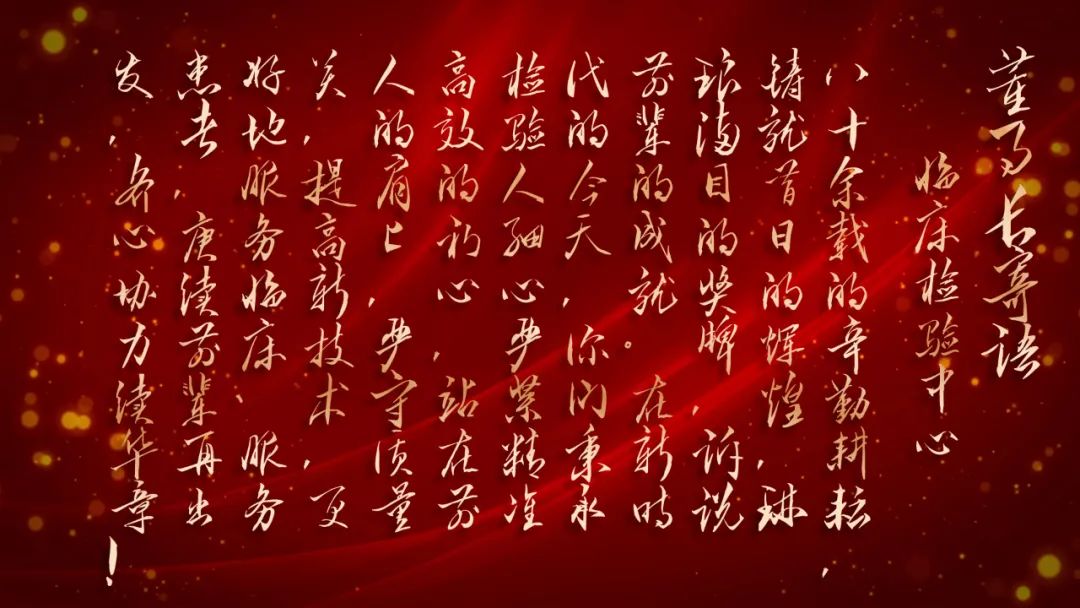 董事长寄语
临床检验中心
八十余载的辛勤耕耘，
铸就昔日的辉煌，琳
琅满目的奖牌，诉说
前辈的成就。在新时
代的今天，你们秉承
检验人细心，严紧精准
高效的初心，站在前
人的肩上，严守质量
关，提高新技术，更
好地服务临床、服务
患者，庚续前辈再出
发，齐心协力续华章！